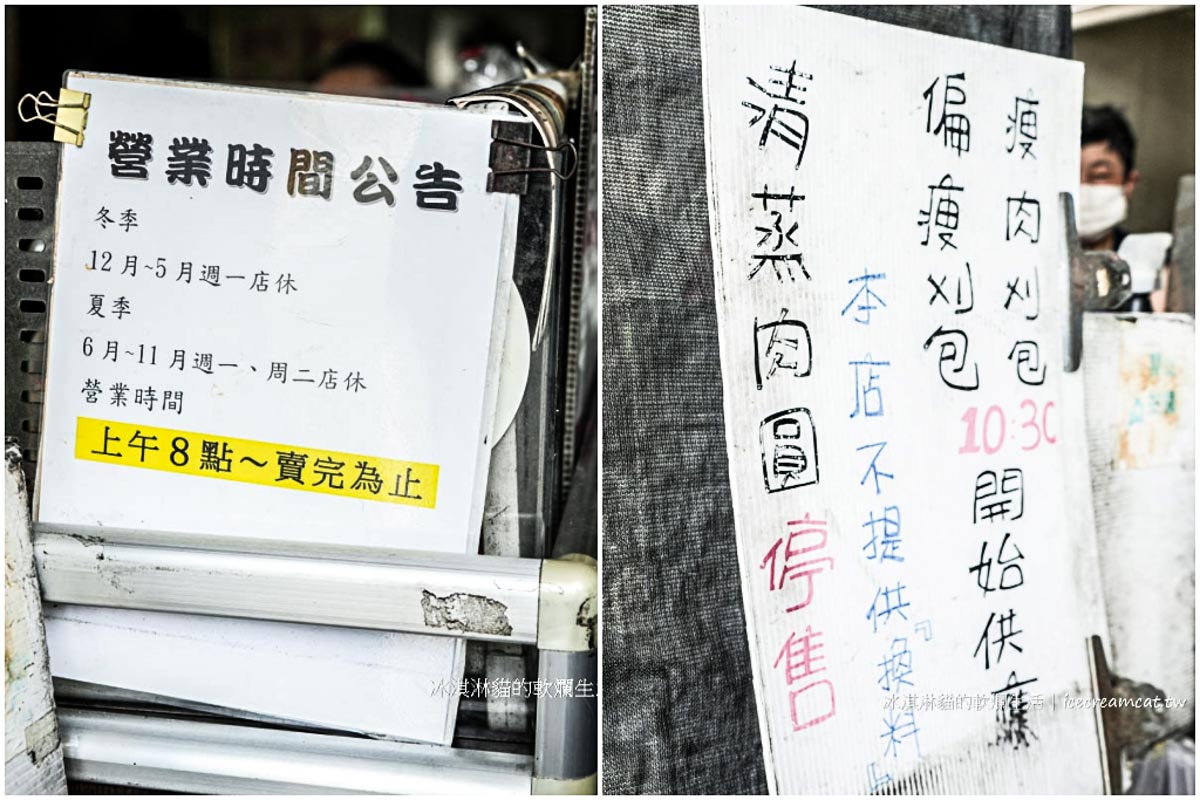 營業時間公告
冬季
12月~5月週一店休
夏季
6月~11月週一、周二店休
營業時間
上午8點～賣完為止
冰淇淋貓的軟爛生
瘦肉刈包
偏瘦刈包
10:30
開始供應
本店不提供『換料』
清蒸肉圓停售
冰淇淋貓的軟爛生活｜icecreamcat.tw